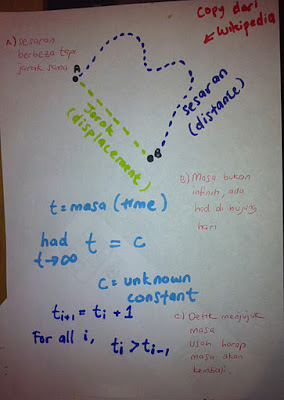 Copy dari
wikipedia
A) sesaran
berbeza tapi
jarak sama
A
B
Jarak
(displacement)
sesaran
(distance)
t = masa (time)
had t = c
t→∞
c = unknown
constant
B) Masa bukan
infiniti, ada
had di hujung
hari
t i+1 = t i + 1
For all i, t i > t i-1
C) Detik menjujuk
masa
usah harap
masa akan
kembali